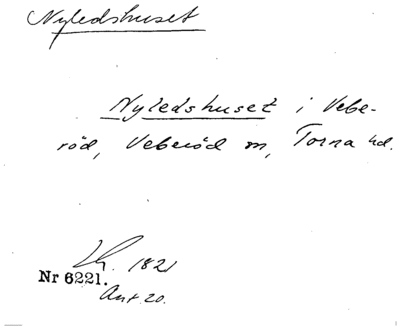 Nyledshuset
Nyledshuset i Vebe-
röd, Veberöd sn, Torna hd.
1821
Nr 6221.
Ant. 20.